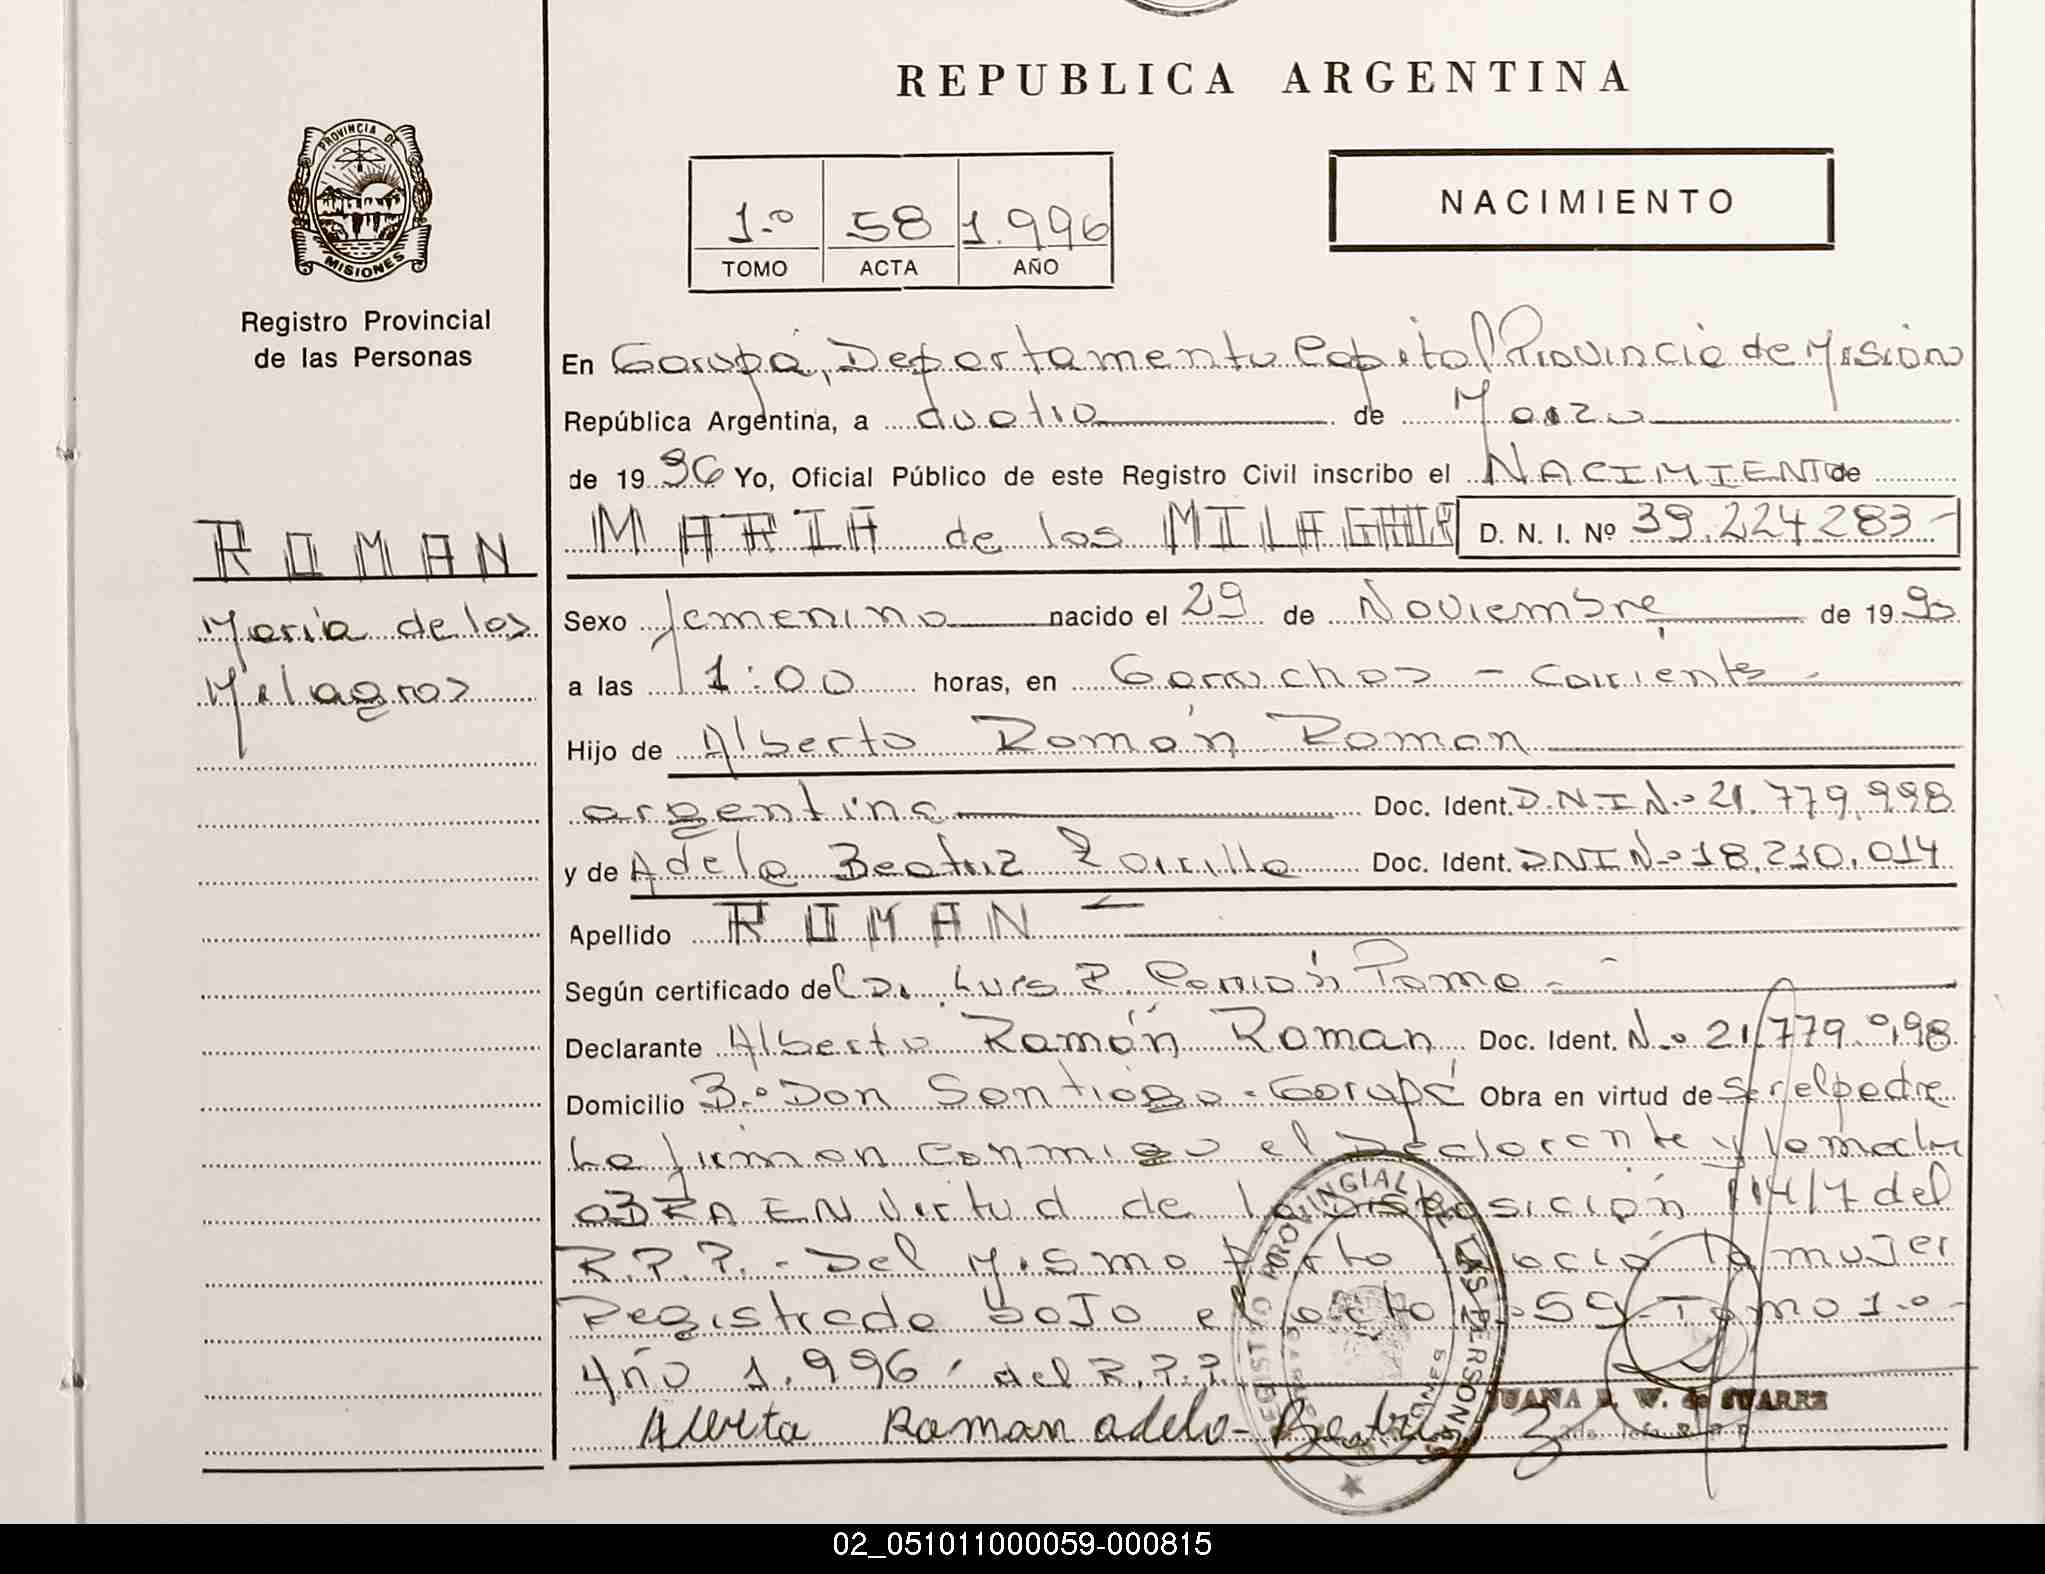 REPUBLICA ARGENTINA
PROVINCIA DE MISIONES
Registro Provincial
de las Personas
1.º 58 1.996
TOMO ACTA AÑO
NACIMIENTO
En Garupá, Departamento Capital Provincia de Mision
República Argentina, a cuatro de Marzo
de 19 96 Yo, Oficial Público de este Registro Civil inscribo el NACIMIENTO de
MARIA de los D. N. I. Nº 39.224283-
ROMAN
Maria de los
Milagros
Sexo femenino nacido el 29 de Noviembre de 19 95
a las 1:00 horas, en Garruchos - Corrientes
Hijo de Alberto Román Roman
argentina Doc. Ident. D.N.I N.º 21.779.998
y de Adela Beatriz Zorrilla Doc. Ident. DNI N.º 18.210.014
Apellido ROMAN -
Según certificado del Dr. Luis R.
Declarante Alberto Ramón Roman Doc. Ident. N.º 21.779.998
Domicilio B.º Don Santiago - Garupá Obra en virtud de Ser el padre
La firman conmigo el Declarante y la madre
OBRA EN Virtud de la Disposición 114/7 del
R.P.P. - Del Mismo Parto nació la mujer
Registrada bajo el acta 59 Tomo 1.º -
Año 1.996, del R.P.P.
Roman adela - Beatriz Z
REGISTRO PROVINCIAL DE LAS PERSONAS
MISIONES
JUANA W. de SUAREZ
02_051011000059-000815